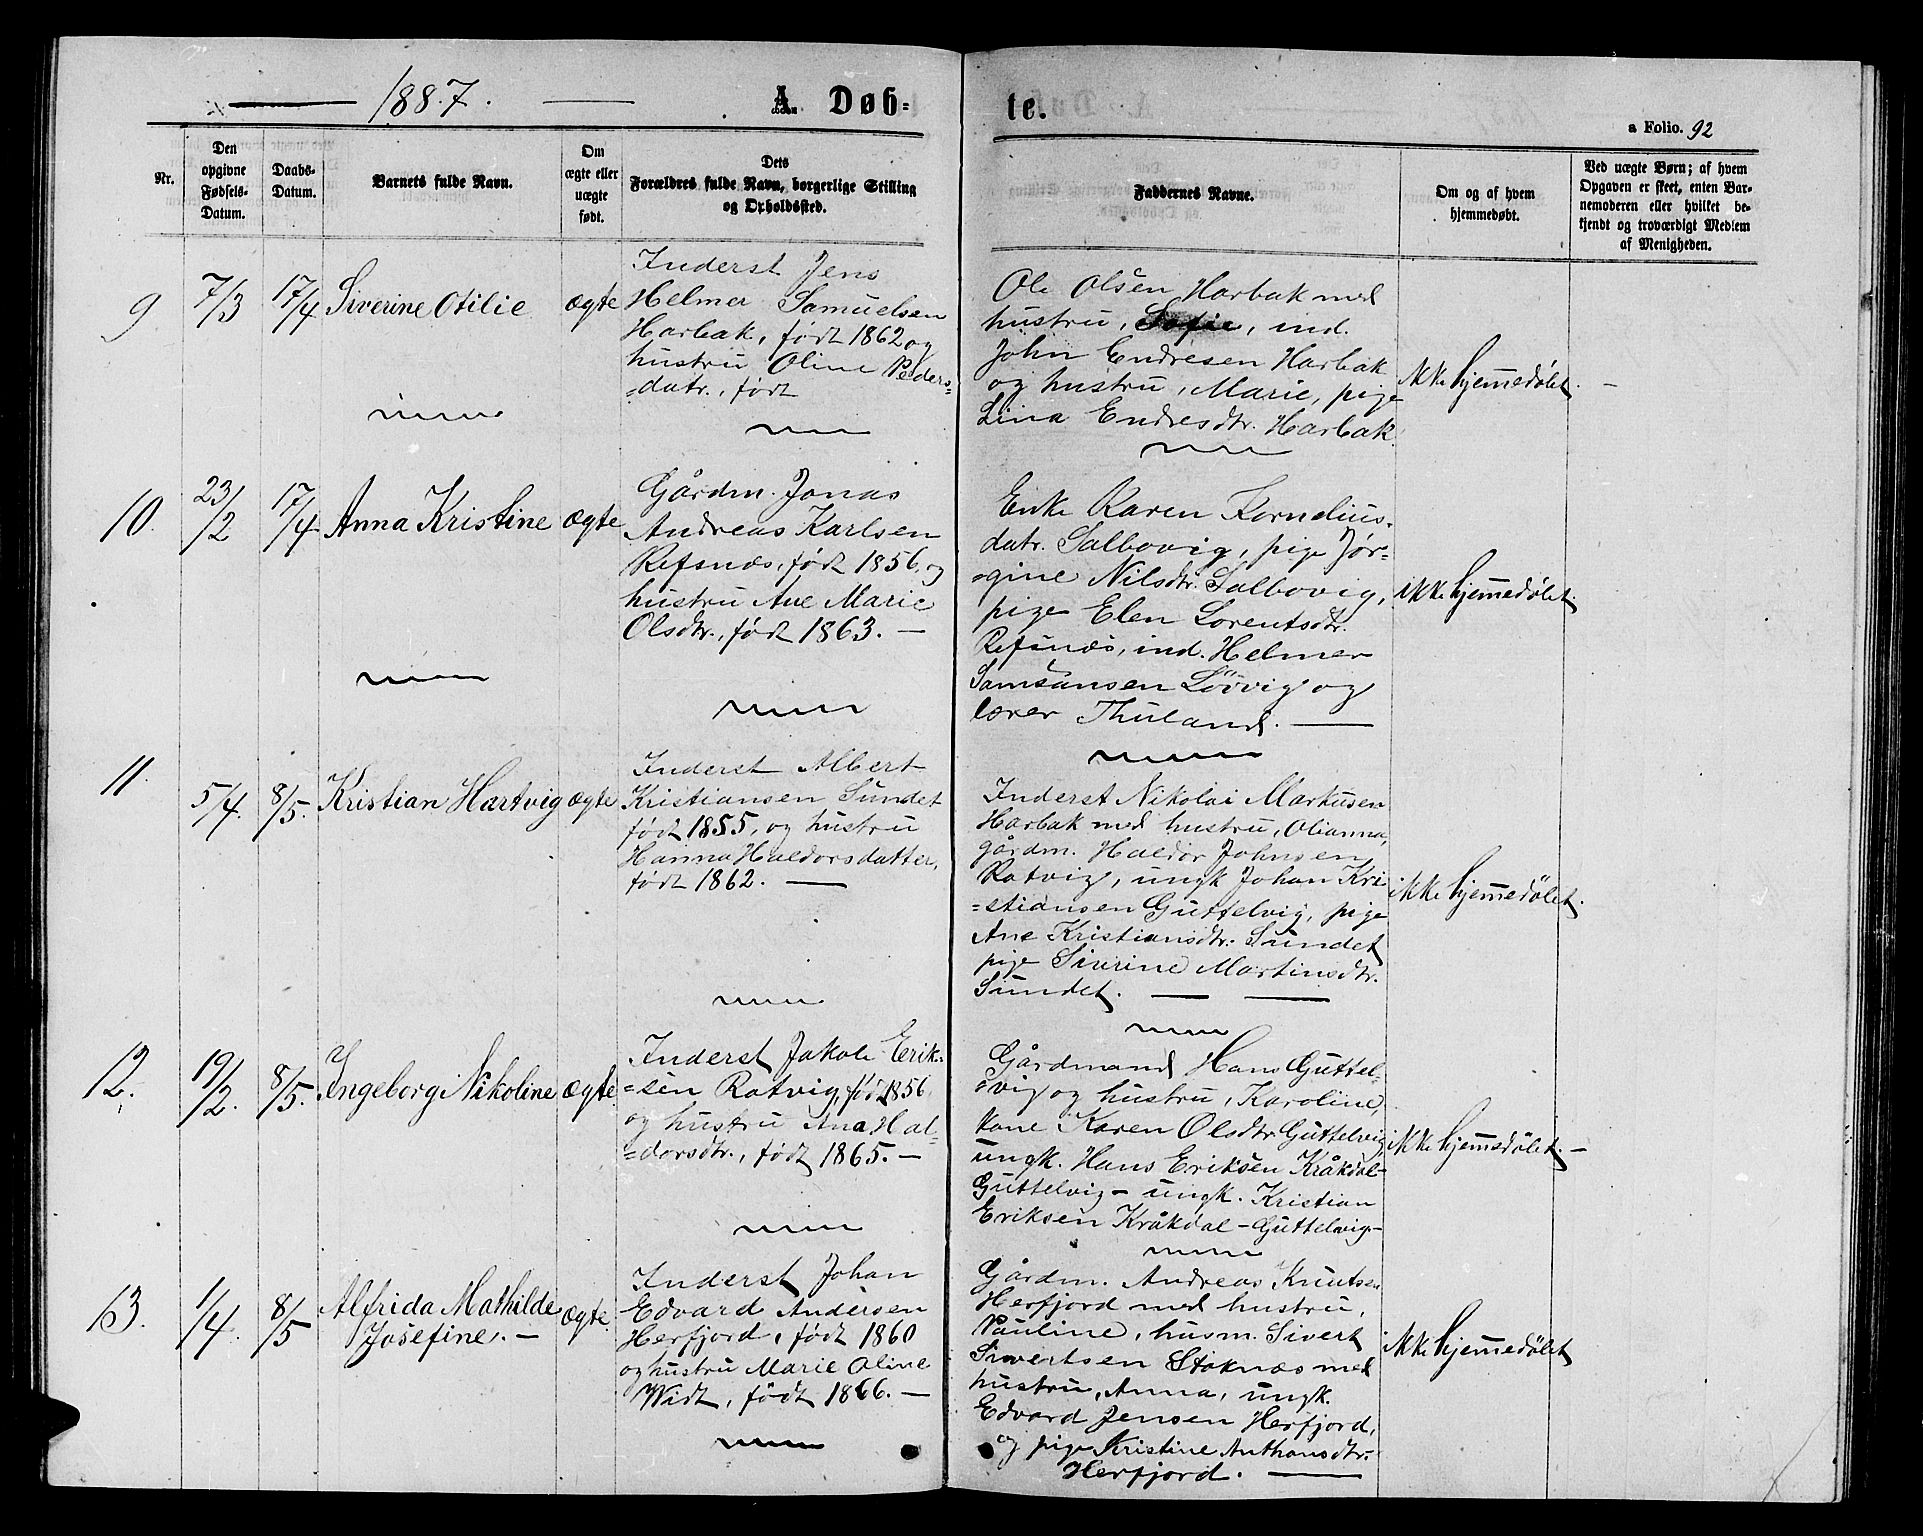 1887.
A. Døb-
te.
a Folio. 92
Nr.
Den opgivne Fødsels-Datum.
Daabs-Datum.
Barnets fulde Navn.
Om ægte eller uægte født.
Dets Forældres fulde Navn, borgerlige Stilling og Opholdssted.
Faddernes Navne.
Om og af hvem hjemmedøbt.
Ved uægte Børn; af hvem Opgaven er skeet, enten Barnemoderen eller hvilket bekjendt og troværdigt Medlem af Menigheden.
9
7/3
17/4
Siverine Otilie
ægte
Inderst Jens
Helmer Samuelsen
Harbak, født 1862 og
hustru Oline Peders-
=datr., født
Ole Olsen Harbak med
hustru, Sofie, ind.
John Endresen Harbak
og hustru, Marie, pige
Lina Endresdtr. Harbak.
ikke hjemmedøbt.
10.
23/2
17/4
Anna Kristine
ægte
Gårdm. Jonas
Andreas Karlsen
Refsnæs, født 1856, og
hustru Ane Marie
Olsdtr., født 1863. —
Enke Karen Kornelius-
datr. Salbovig, pige Jør-
=gine Nilsdtr. Salbovig,
pige Elen Lorentsdtr.
Refsnæs, ind. Helmer
Samsonsen Lövvig og
lærer Thuland. —
ikke hjemmedøbt.
11.
5/4.
8/5.
Kristian Hartvig
ægte
Inderst Albert
Kristiansen Sundet
født 1855, og hustru
Hanna Haldorsdatter,
født 1862. —
Inderst Nikolai Markusen
Harbak med hustru, Olianna,
gårdm. Haldor Johnsen
Ratvig, ungk Johan Kri
=stiansen Guttelvig, pige
Ane Kristiansdtr. Sundet
pige Sivrine Martinsdtr.
Sundet. — —
ikke hjemmedøbt.
12.
19/2.
8/5.
Ingeborg Nikoline
ægte
Inderst Jakob Erik-
=sen Ratvig, født 1856,
og hustru Ana Hal-
=dorsdtr., født 1865. —
Gårdmand Hans Guttel-
=vig og hustru, Karoline,
kone Karen Olsdtr Guttelvig,
ungk. Hans Eriksen Kråkdal-
Guttelvig — ungk. Kristian
Eriksen Kråkdal - Guttelvig -
ikke hjemmedøbt. —
13.
1/4.
8/5
Alfrida Mathilde
Josefine. —
ægte.
Inderst Johan
Edvard Andersen
Herfjord, født 1860
og hustru Marie Oline
Widt, født 1866. —
Gårdm. Andreas Knutsen
Herfjord med hustru,
Pauline, husm. Sivert
Sivertsen Stoknæs med
hustru, Anna, ungk.
Edvard Jensen Herfjord,
og pige Kristine Anthonsdtr.
Herfjord. —
ikke hjemmedøbt